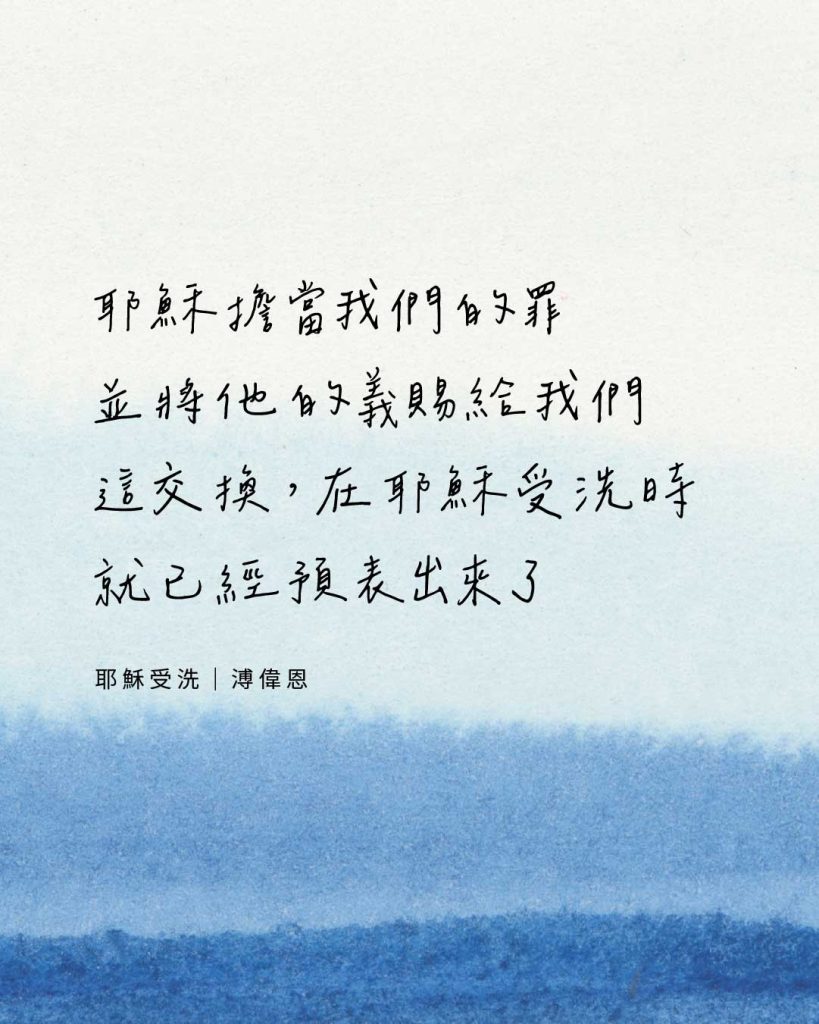 耶穌擔當我們的罪
並將他的義賜給我們
這交換，在耶穌受洗時
就已經預表出來了
耶穌受洗｜溥偉恩